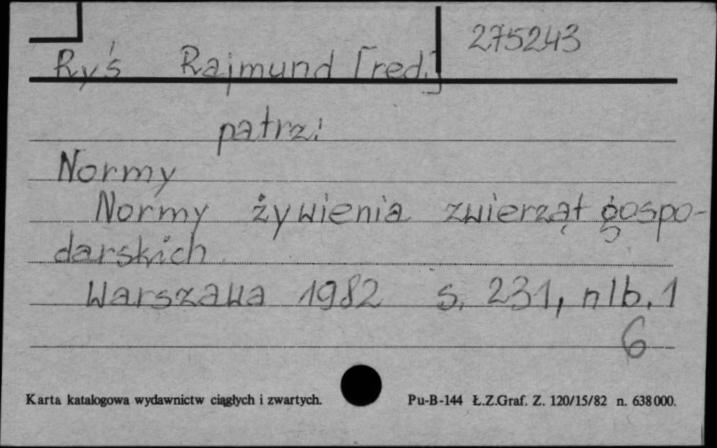 275243
Ryś Rajmund [red.]
patrz:
Normy
Normy żywienia zwierząt gospo-
darskich
Warszawa 1982 s. 231, nlb. 1
6
Karta katalogowa wydawnictw ciągłych i zwartych. Pu-B-144 Ł.Z.Graf. Z. 120/15/82 n. 638000.